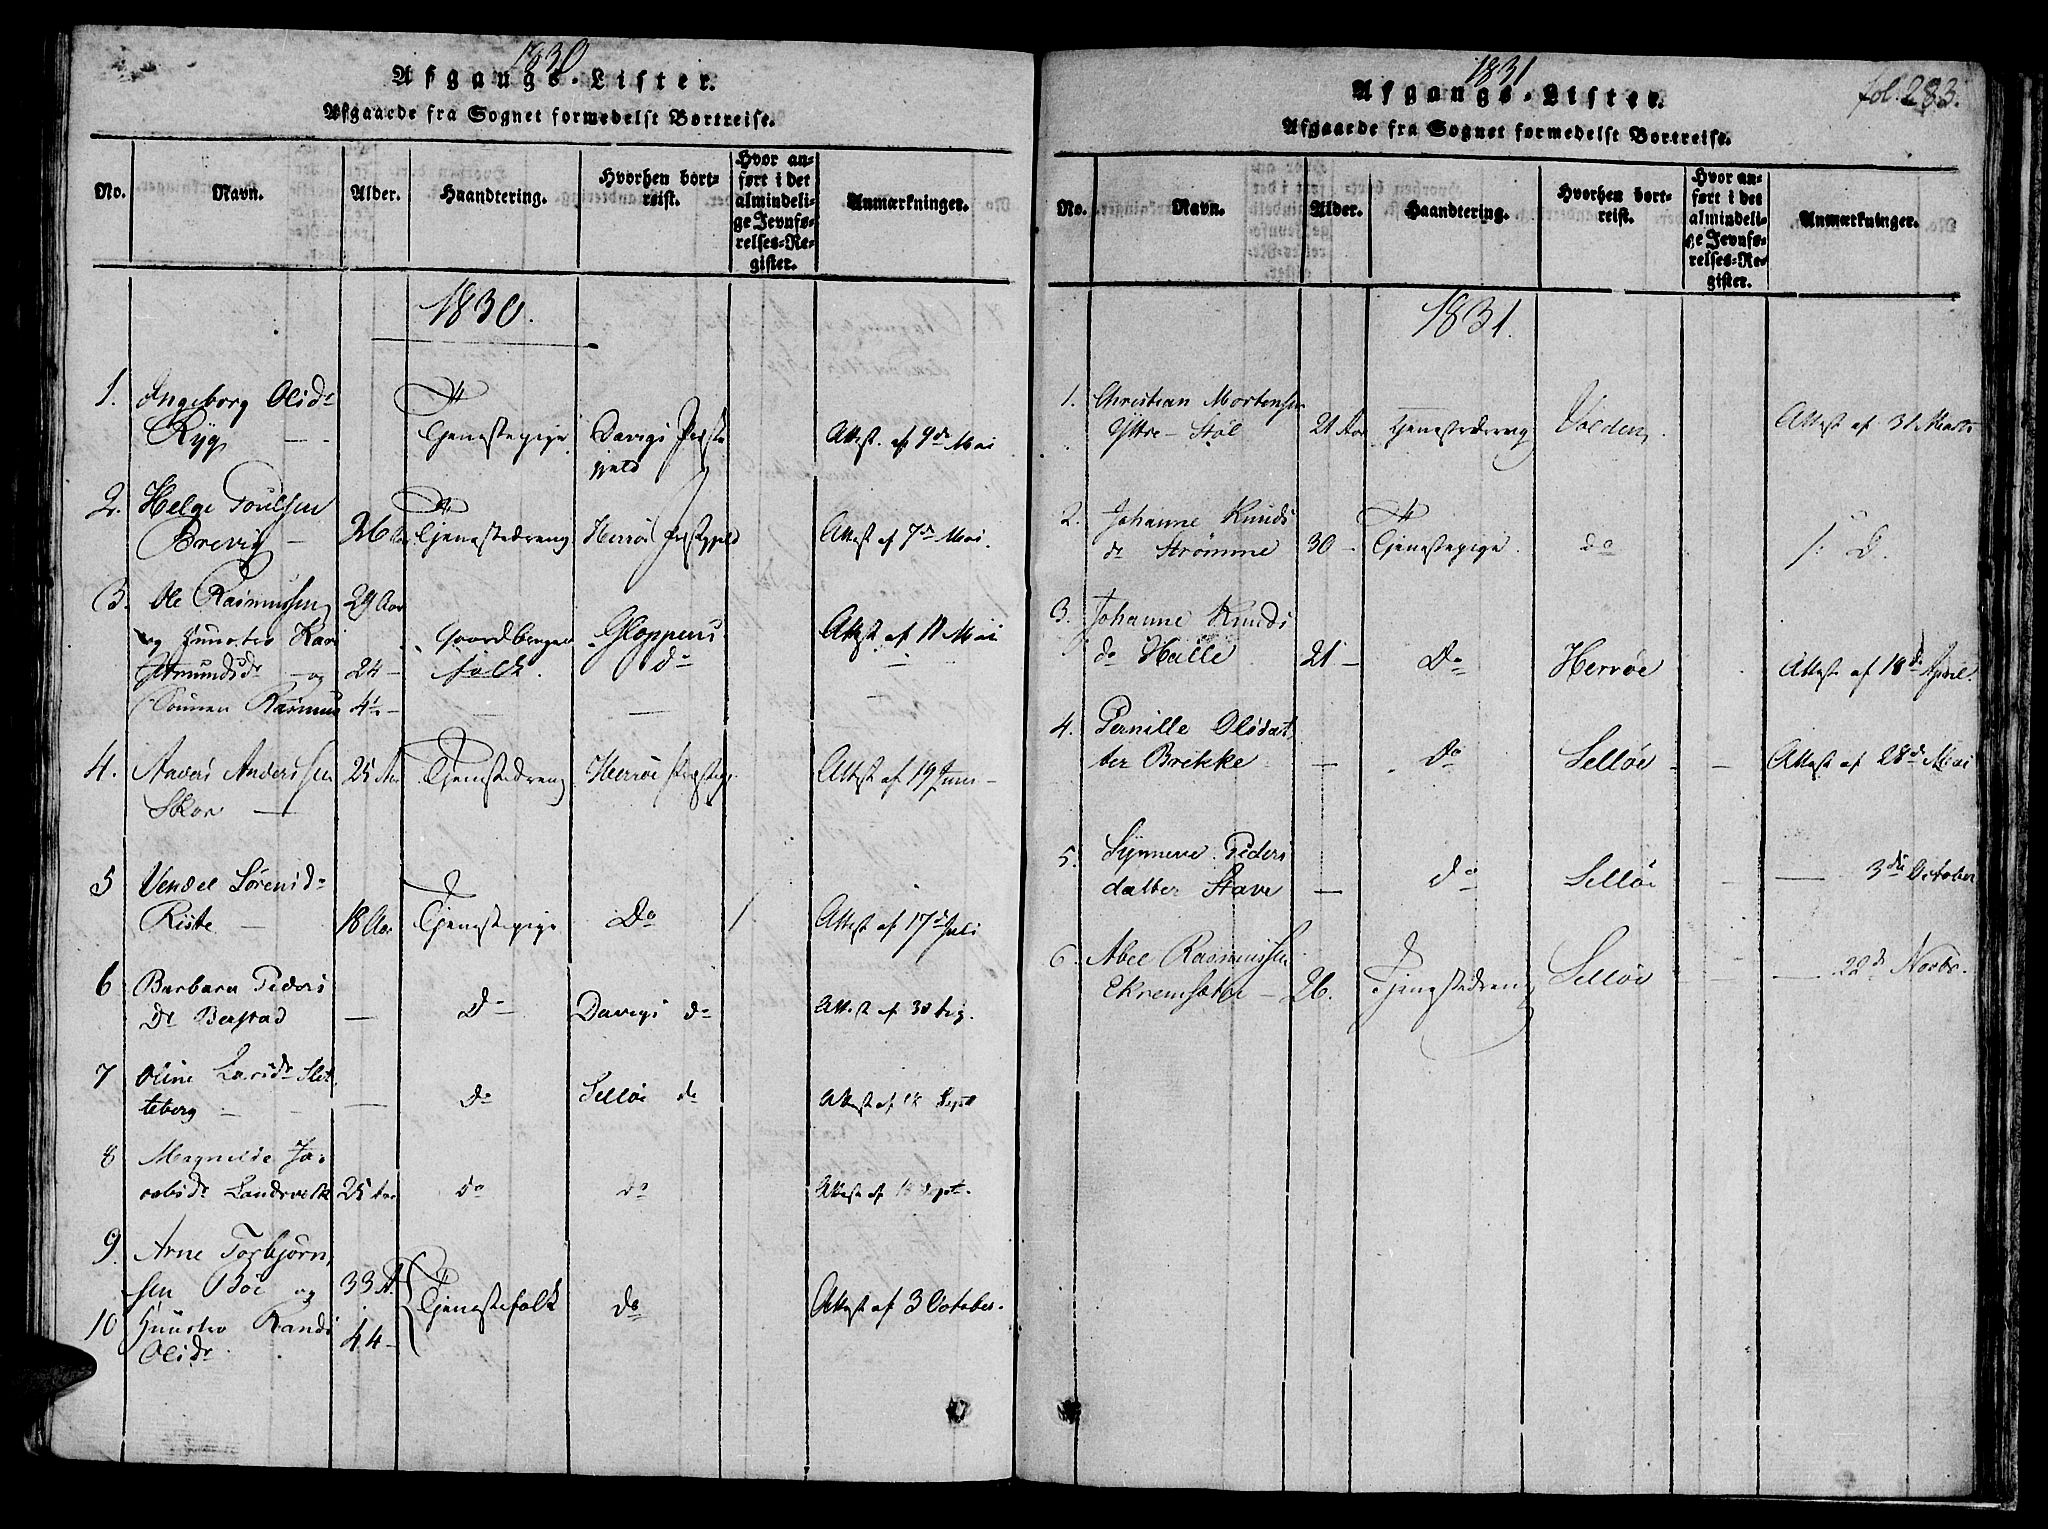 1830
Afgangs-Lister.
Afgaaede fra Sognet formedelst Bortreise.
No.
Navn.
Alder.
Haandtering.
Hvorhen bort-
reist.
Hvor an-
ført i det
almindeli-
ge Jevnfø-
relses-Re-
gister.
Anmærkninger.
1830.
1. Ingeborg Olsdr
Ryg — Tjenestepige Davigs Præste
gjeld Attest. af 9de Mai
2. Helge Poulsen
Brevig — 26 Aar Tjenestedreng Herrøe Præstegjeld Attest af 7de Mai.
3. Ole Rasmussen 29 Aar
og Hunstro Kari Gaardbruger Gloppens Attest. af 11 Mai
Amundsdr — og 24 — folk. do
Sønnen Rasmus 4½ —
4. Anders Anderssen 25 Aar Tjenestedreng Herrøe Præsteg. Attest af 19 Juni —
Skor —
5 Vendel Sørensd
Riste — 18 Aar Tjenestepige Do / Attest af 17de Juli
6 Barbara Peders
Dr Berstad — Do Davigs do Attest af 30
7 Oline Larsdr Slet
teberg — — Do Selløe do Attest af 18 Sept
8 Magnilde Ja-
cobsdr Landsverk 25 Aar do do Attest af 18 Septr.
9. Arne Torbjørn-
sen Böe og 33 A. Tjenestefolk do Attest af 3 October.
10 Hunstro Randi
Olsdr 44 —
1831
fol. 283.
Afgangs-Lister.
Afgaaede fra Sognet formedelst Bortreise.
No.
Navn.
Alder.
Haandtering.
Hvorhen bort-
reist.
Hvor an-
ført i det
almindeli-
ge Jevnfø-
relses-Re-
gister.
Anmærkninger.
1831.
1. Christian Mortensen
Yttre-Støl 21 Aar Tjenestedreng Volden. Attest af 31 Marts
2. Johanne Knuds
dr Strømme 30 — Tjenestepige. do /: D.
3. Johanne Knuds
dr Halle 21 — Do Herrøe Attest af 18de April.
4. Pernille Olsdat-
ter Brekke — Do Selløe — Attest af 28de Mai
5. Synneve Peders
datter Stave — do Selløe — 3die October
6. Abel Rasmussen
Ekremsæter — 26. Tjenestedreng Selløe — 22de Novbr.